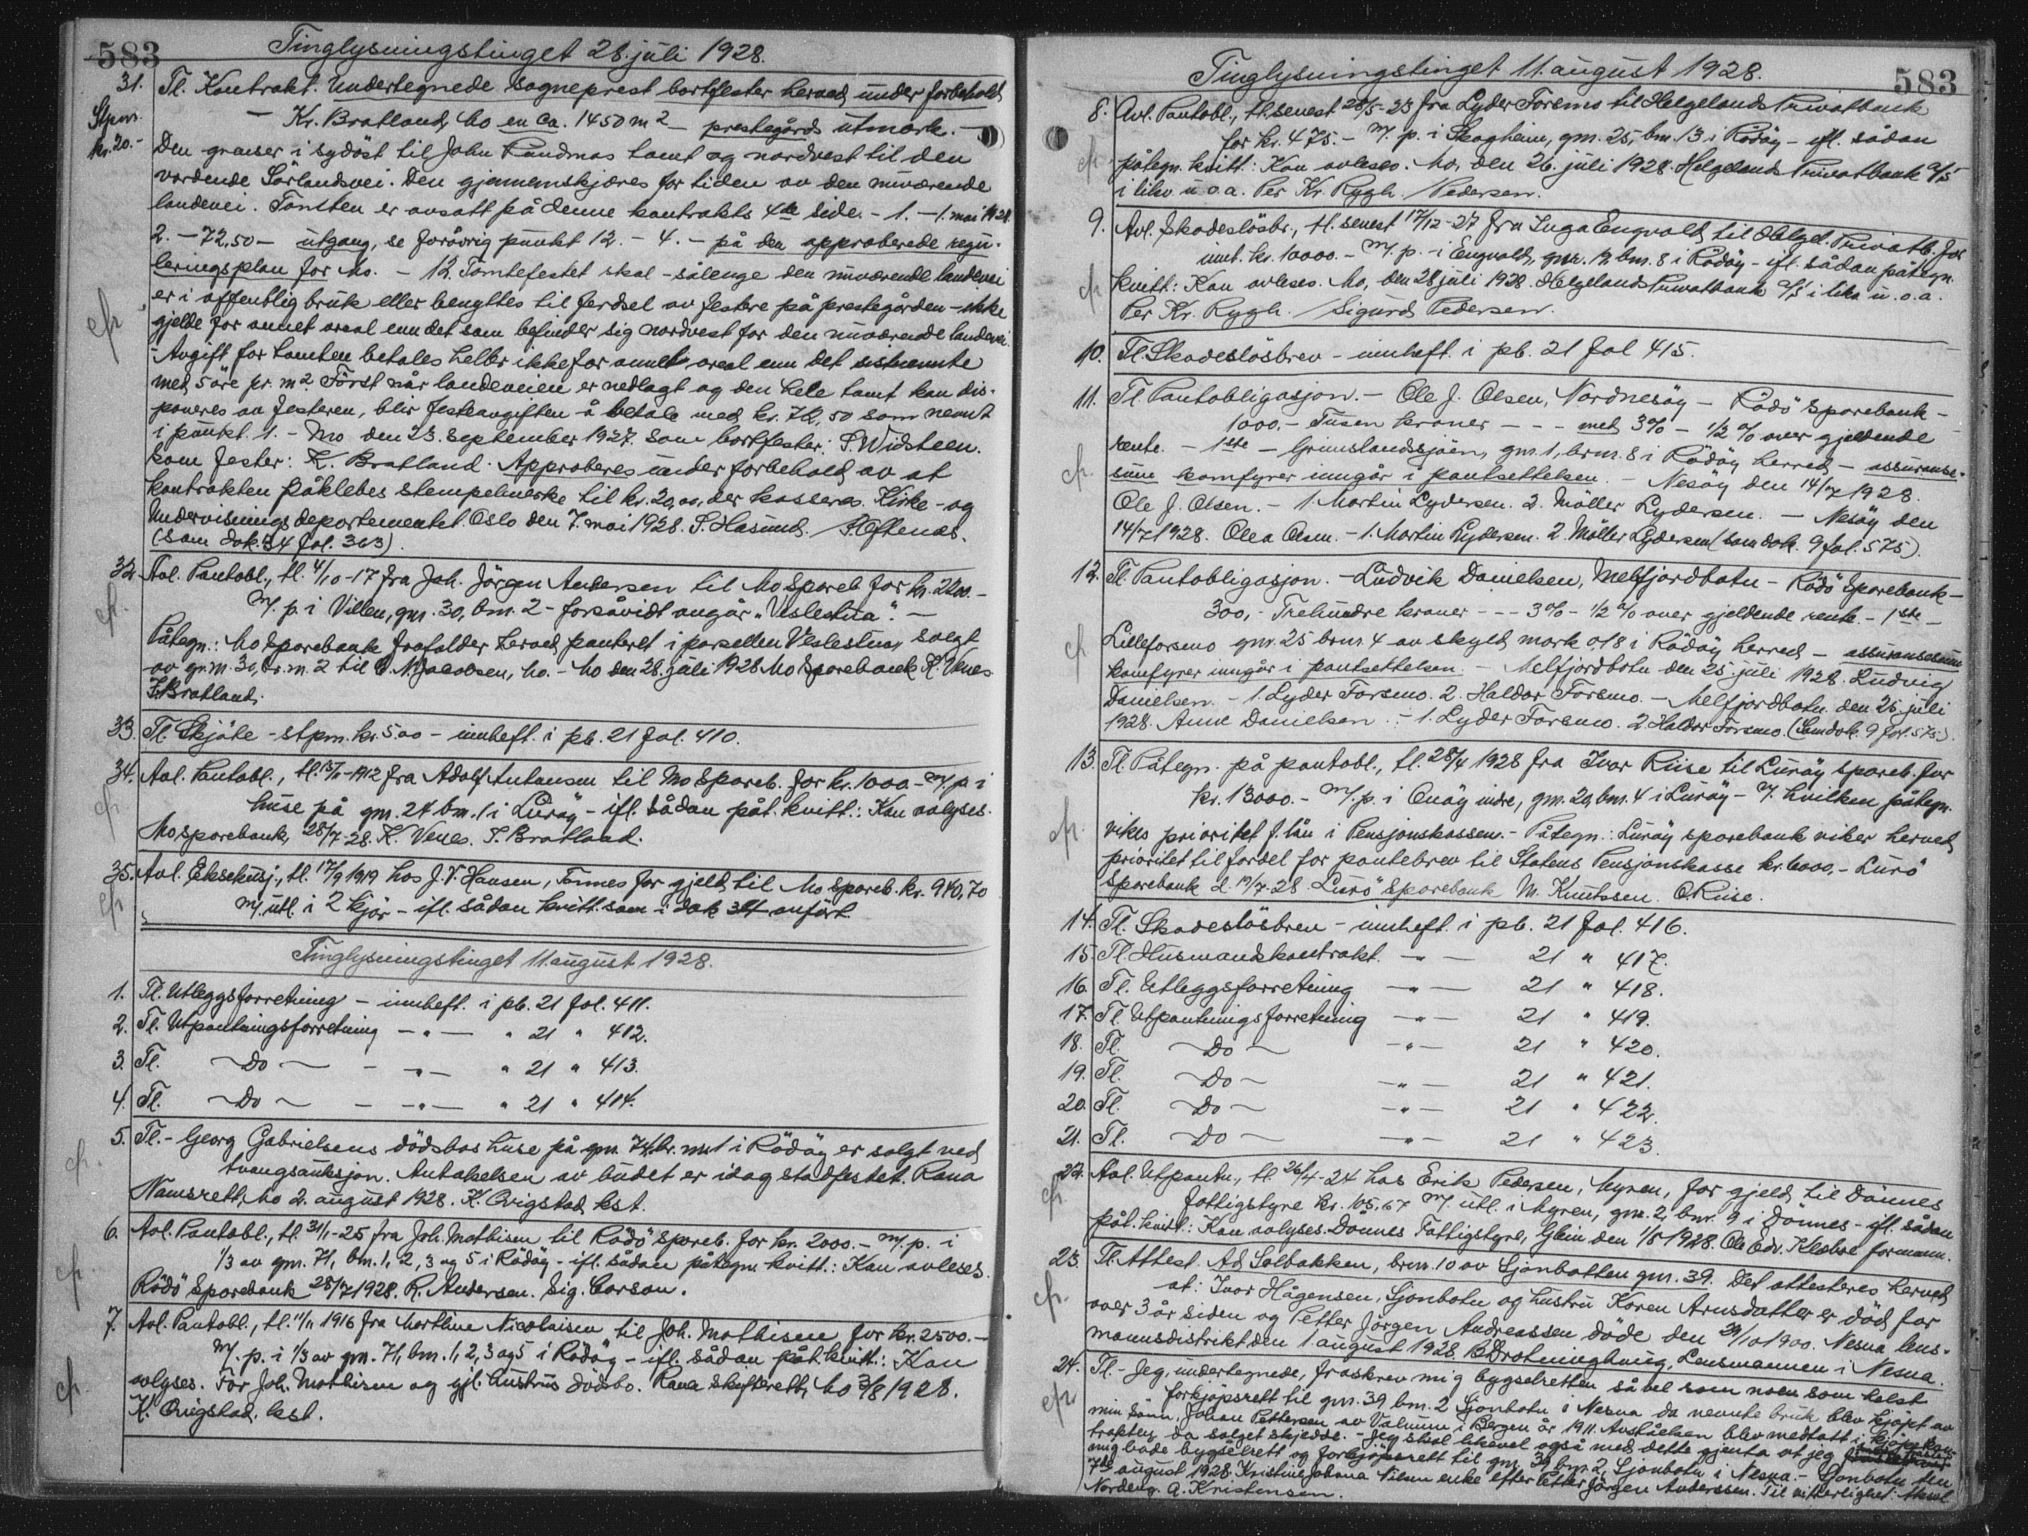 583
Tinglysningstinget 28. juli 1928.
31. Tl. Kontrakt. Undertegnede Sogneprest bortfester herved under forbehold
Stpm. kr. 20.-
— Kr. Bratland, Mo en ca. 1450 m2 — prestegårds utmark. —
Den grenser i sydöst til John Randmos tomt og nordvest til den
vordende Sörlandsvei. Den gjennemskjæres for tiden av den nuværende
landevei. Tomten er avsatt på denne kontrakts 4de side. - 1. — 1. mai 1928
2. — 72,50 — utgang, se forövrig punkt 12. - 4. — på den approberede regu-
leringsplan for Mo. — 12. Tomtefestet skal - sålenge den nuværende landevei
er i offentlig bruk eller benyttes til ferdsel av festere på prestegården - ikke
gjelde for annet areal enn det som befinder sig nordvest for den nuværende landevei.
Avgift for tomten betales heller ikke for annet areal enn det sistnevnte
med 5 öre pr. m2 Först når landeveien er nedlagt og den hele tomt kan dis-
poneres av festeren, blir festeavgiften å betale med kr. 72,50 som nevnt
i punkt 1. - Mo den 23. september 1927. Som bortfester: S. Widsteen.
Som fester: K. Bratland. Approberes under forbehold av at
kontrakten påklebes stempelmerke til kr. 20,00, der kasseres. Kirke- og
Undervisningsdepartementet Oslo den 7. mai 1928. S. Hasund. / S. Oftenæs.
(Som dok. 34 fol. 363).
32. Avl. Pantobl., tl. 4/10-17 fra Joh. Jörgen Andersen til Mo Spareb. for kr. 2200.-
m/. p. i Villen, gnr. 30, bnr. 2 - forsåvidt angår "Veslestua". —
Påtegn.: Mo Sparebank frafalder herved panterett i parsellen Veslestua, solgt
av gr.nr. 30, br.nr. 2 til C. N. Jacobsen, Mo. - Mo den 28. juli 1928 Mo Sparebank K. Venes
S. Bratland.
33. Tl. Skjöte - stpm. kr. 5.00 - innheft. i pb. 21 fol. 410.
34. Avl. Pantobl., tl. 13/11-1912 fra Adolf Antonsen til Mo Spareb. for kr. 1000.- m/. p. i
huse på gnr. 24 bnr. 1 i Luröy - ifl. sådan påt. kvitt.: Kan avlyses.
Mo Sparebank, 28/7-28. K. Venes. S. Bratland.
35. Avl. Eksekusj., tl. 17/9 1919 hos J. V. Hansen, Tonnes for gjeld til Mo Spareb. kr. 940,70
m/. utl. i 2 kjör - ifl. sådan kvitt. som i dok 34 anfört.
Tinglysningstinget 11. august 1928.
1. Tl. Utleggsforretning - innheft. i pb. 21 fol. 411.
2. Tl. Utpantningsforretning — " — " 21 " 412.
3. Tl. — Do — — " — " 21 " 413.
4. Tl. — Do — — " — " 21 " 414.
5. Tl. - Georg Gabrielsens dödsbos huse på gnr. 74, br. nr. 1 i Rödöy er solgt ved
tvangsauksjon. Antakelsen av budet er idag stadfestet. Rana
Namsrett, Mo 2. august 1928. K. Qvigstad, kst.
6. Avl. Pantobl., tl. 31/1-25 fra Joh. Mathisen til Rödö Spareb. for kr. 2000.- m/. p. i
1/3 av gnr. 71, bnr. 1, 2, 3 og 5 i Rödöy - ifl. sådan påtegn. kvitt.: Kan avleses.
Rödö Sparebank 28/7 1928. R. Andersen. Sig. Carson.
7. Avl. Pantobl., tl. 11/11 1916 fra Marthine Nicolaisen til Joh. Mathisen for kr. 2500.-
m/. p. i 1/3 av gnr. 71, bnr. 1, 2, 3 og 5 i Rödöy - ifl. sådan påt. kvitt.: Kan
avlyses. For Joh. Mathisen og gjl. hustrus dödsbo. Rana Skifterett, Mo 3/8 1928.
K. Qvigstad, kst.
583
Tinglysningstinget 11. august 1928.
8. Avl. Pantobl., tl. senest 28/5-23 fra Lyder Forsmo til Helgelands Privatbank
for kr. 475.- m/. p. i Skogheim, gnr. 25, bnr. 13 i Rödöy - ifl. sådan
påtegn. kvitt.: Kan avleses. Mo, den 26. juli 1928. Helgelands Privatbank A/S
i likv. u.o.a. Per Kr. Rygh. / Pedersen.
9. Avl. Skadeslösbr., tl. senest 17/12-27 fra Inga Engvold til Helgel. Privatb. for
inntl. kr. 10000.- m/. p. i Engvold, gnr. 12 bnr. 8 i Rödöy - ifl. sådan påtegn.
kvitt: Kan avleses. Mo, den 28 juli 1928. Helgelands Privatbank A/S i likv. u.o.a.
Per Kr. Rygh. / Sigurd Pedersen.
10. Tl. Skadeslösbrev - innheft. i pb. 21 fol 415.
11. Tl. Pantobligasjon. - Ole J. Olsen, Nordnesöy - Rödö Sparebank -
1000.- Tusen kroner - - - med 3% - 1/2 % over gjeldende
rente. - 1ste - Grimslandssjöen, gnr. 1, brnr. 8 i Rödöy herred - assuranse-
sum komfyrer inngår i pantsettelsen. - Nesöy den 14/7 1928.
Ole J. Olsen. - 1. Martin Lydersen. 2. Möller Lydersen. - Nesöy den
14/7 1928. Olea Olsen. - 1. Martin Lydersen. 2. Möller Lydersen (som dok. 9 fol. 575).
12. Tl. Pantobligasjon. - Ludvik Danielsen, Melfjordbotn - Rödö Sparebank -
300,- Trehundre kroner - - - 3% - 1/2 % over gjeldende rente - 1ste -
Lilleforsmo gnr. 25 brnr. 4 av skyld mark 0.18 i Rödöy herred - assuransesum
komfyrer inngår i pantsettelsen. - Melfjordbotn den 25. juli 1928. Ludvig
Danielsen. - 1. Lyder Forsmo. 2. Haldor Forsmo. - Melfjordbotn. den 25. juli
1928. Anne Danielsen. - 1. Lyder Forsmo. 2. Haldor Forsmo. (Som dok. 9 fol. 575).
13. Tl. Påtegn. på pantobl., tl. 28/4 1928 fra Ivar Riise til Luröy Spareb. for
kr. 13000.- m/. p. i Onöy indre, gnr. 29, bnr. 4 i Luröy - v/. hvilken påtegn.
vikes prioritet f. lån i Pensjonskassen. - Påtegn.: Luröy Sparebank viker herved
prioritet til fordel for pantebrev til Statens Pensjonskasse kr. 6000,- Lurö
Sparebank d. 19/7-28 Lurö Sparebank M. Knutssen. O. Riise.
14. Tl. Skadeslösbrev - innheft. i pb. 21 fol. 416.
15. Tl. Husmandskontrakt. — " — 21 " 417.
16. Tl. Utleggsforretning — " — 21 " 418.
17. Tl. Utpantningsforretning — " — 21 " 419.
18. Tl. — Do — — " — 21 " 420.
19. Tl. — Do — — " — 21 " 421.
20. Tl. — Do — — " — 21 " 422.
21. Tl. — Do — — " — 21 " 423.
22. Avl. Utpantn., tl. 26/4-24 hos Erik Pedersen, Myren, for gjeld til Dönnes
fattigstyre kr. 105.67 m/. utl. i Myren, gnr. 2, bnr. 9 i Dönnes - ifl. sådan
påt. kvitt: Kan avlyses. Dönnes Fattigstyre, Glein den 1/8 1928. Ole Edv. formann.
23. Tl. Attest. Ad Solbakken, brnr. 10 av Sjonbotten gnr. 39. Det attesteres herved,
at: Ivar Hågensen, Sjonbotn og hustru Karen Arnsdatter er död for
over 3 år siden og Petter Jörgen Andreassen döde den 30/10 1900. Nesna lens-
mannsdistrikt den 1 august 1928. B. Drotninghaug, Lensmannen i Nesna.
24. Tl. - Jeg, undertegnede, fraskrev mig bygselretten såvel som noen som helst
forkjöpsrett til gnr. 39 bnr. 2 Sjonbotn i Nesna da nevnte bruk blev kjöpt av
min sönn, Johan Pettersen av Valnum i Bergen år 1911. Avståelsen blev medtatt i kjöpekon-
trakten da salget skjedde. - Jeg skal likevel også med dette gjenta at jeg
mig både bygselrett og forkjöpsrett til gnr. 39 bnr. 2, Sjonbotn i Nesna. - Sjonbotn den
7de august 1928. Kristine Johana Nilsen enke efter Petter Jörgen Andersen. Til vitterlighet:
Nordeng. A. Kristensen.